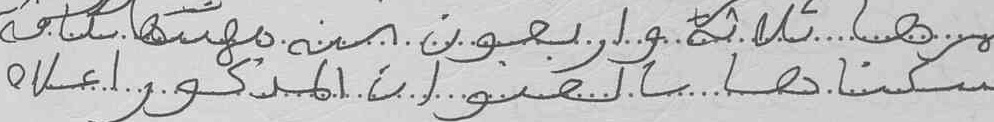 عمرها ثلاثة واربعون سنه مهنتها كاتبة
سكناها بالعنوان المذكور اعلاه